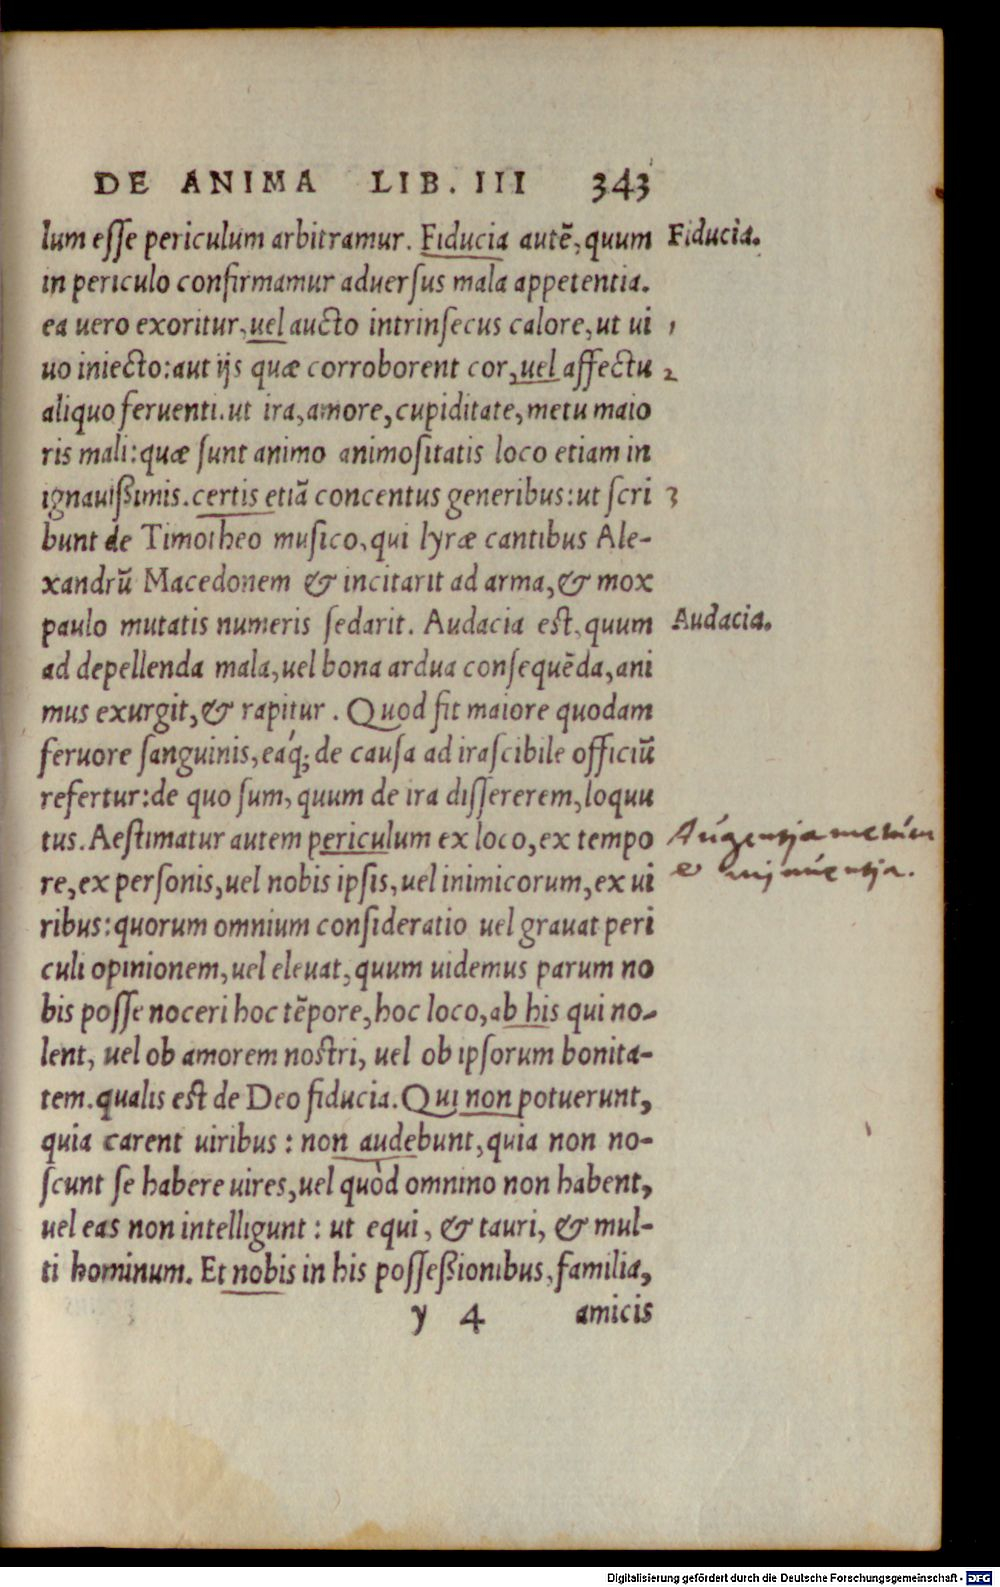 DE ANIMA LIB. III 343
lum eſſe periculum arbitramur. Fiducia autē, quum Fiducia.
in periculo confirmamur aduerſus mala appetentia.
ea uero exoritur, uel aucto intrinſecus calore, ut ui 1
uo iniecto: aut ijs quæ corroborent cor, uel affectu 2
aliquo feruenti. ut ira, amore, cupiditate, metu maio
ris mali: quæ ſunt animo animoſitatis loco etiam in
ignauißimis. certis etiā concentus generibus: ut ſcri 3
bunt de Timotheo muſico, qui lyræ cantibus Ale-
xandrū Macedonem & incitarit ad arma, & mox
paulo mutatis numeris ſedarit. Audacia est, quum Audacia.
ad depellenda mala, uel bona ardua conſequēda, ani
mus exurgit, & rapitur. Quod fit maiore quodam
feruore ſanguinis, eaq́; de cauſa ad iraſcibile officiū
refertur: de quo ſum, quum de ira diſſererem, loquu
tus. Aeſtimatur autem periculum ex loco, ex tempo Augentia metum
re, ex perſonis, uel nobis ipſis, uel inimicorum, ex ui & minuentia.
ribus: quorum omnium conſideratio uel grauat peri
culi opinionem, uel eleuat, quum uidemus parum no
bis poſſe noceri hoc tēpore, hoc loco, ab his qui no-
lent, uel ob amorem noſtri, uel ob ipſorum bonita-
tem. qualis eſt de Deo fiducia. Qui non potuerunt,
quia carent uiribus: non audebunt, quia non no-
ſcunt ſe habere uires, uel quòd omnino non habent,
uel eas non intelligunt: ut equi, & tauri, & mul-
ti hominum. Et nobis in his poſſeßionibus, familia,
y 4 amicis
Digitalisierung gefördert durch die Deutsche Forschungsgemeinschaft - DFG